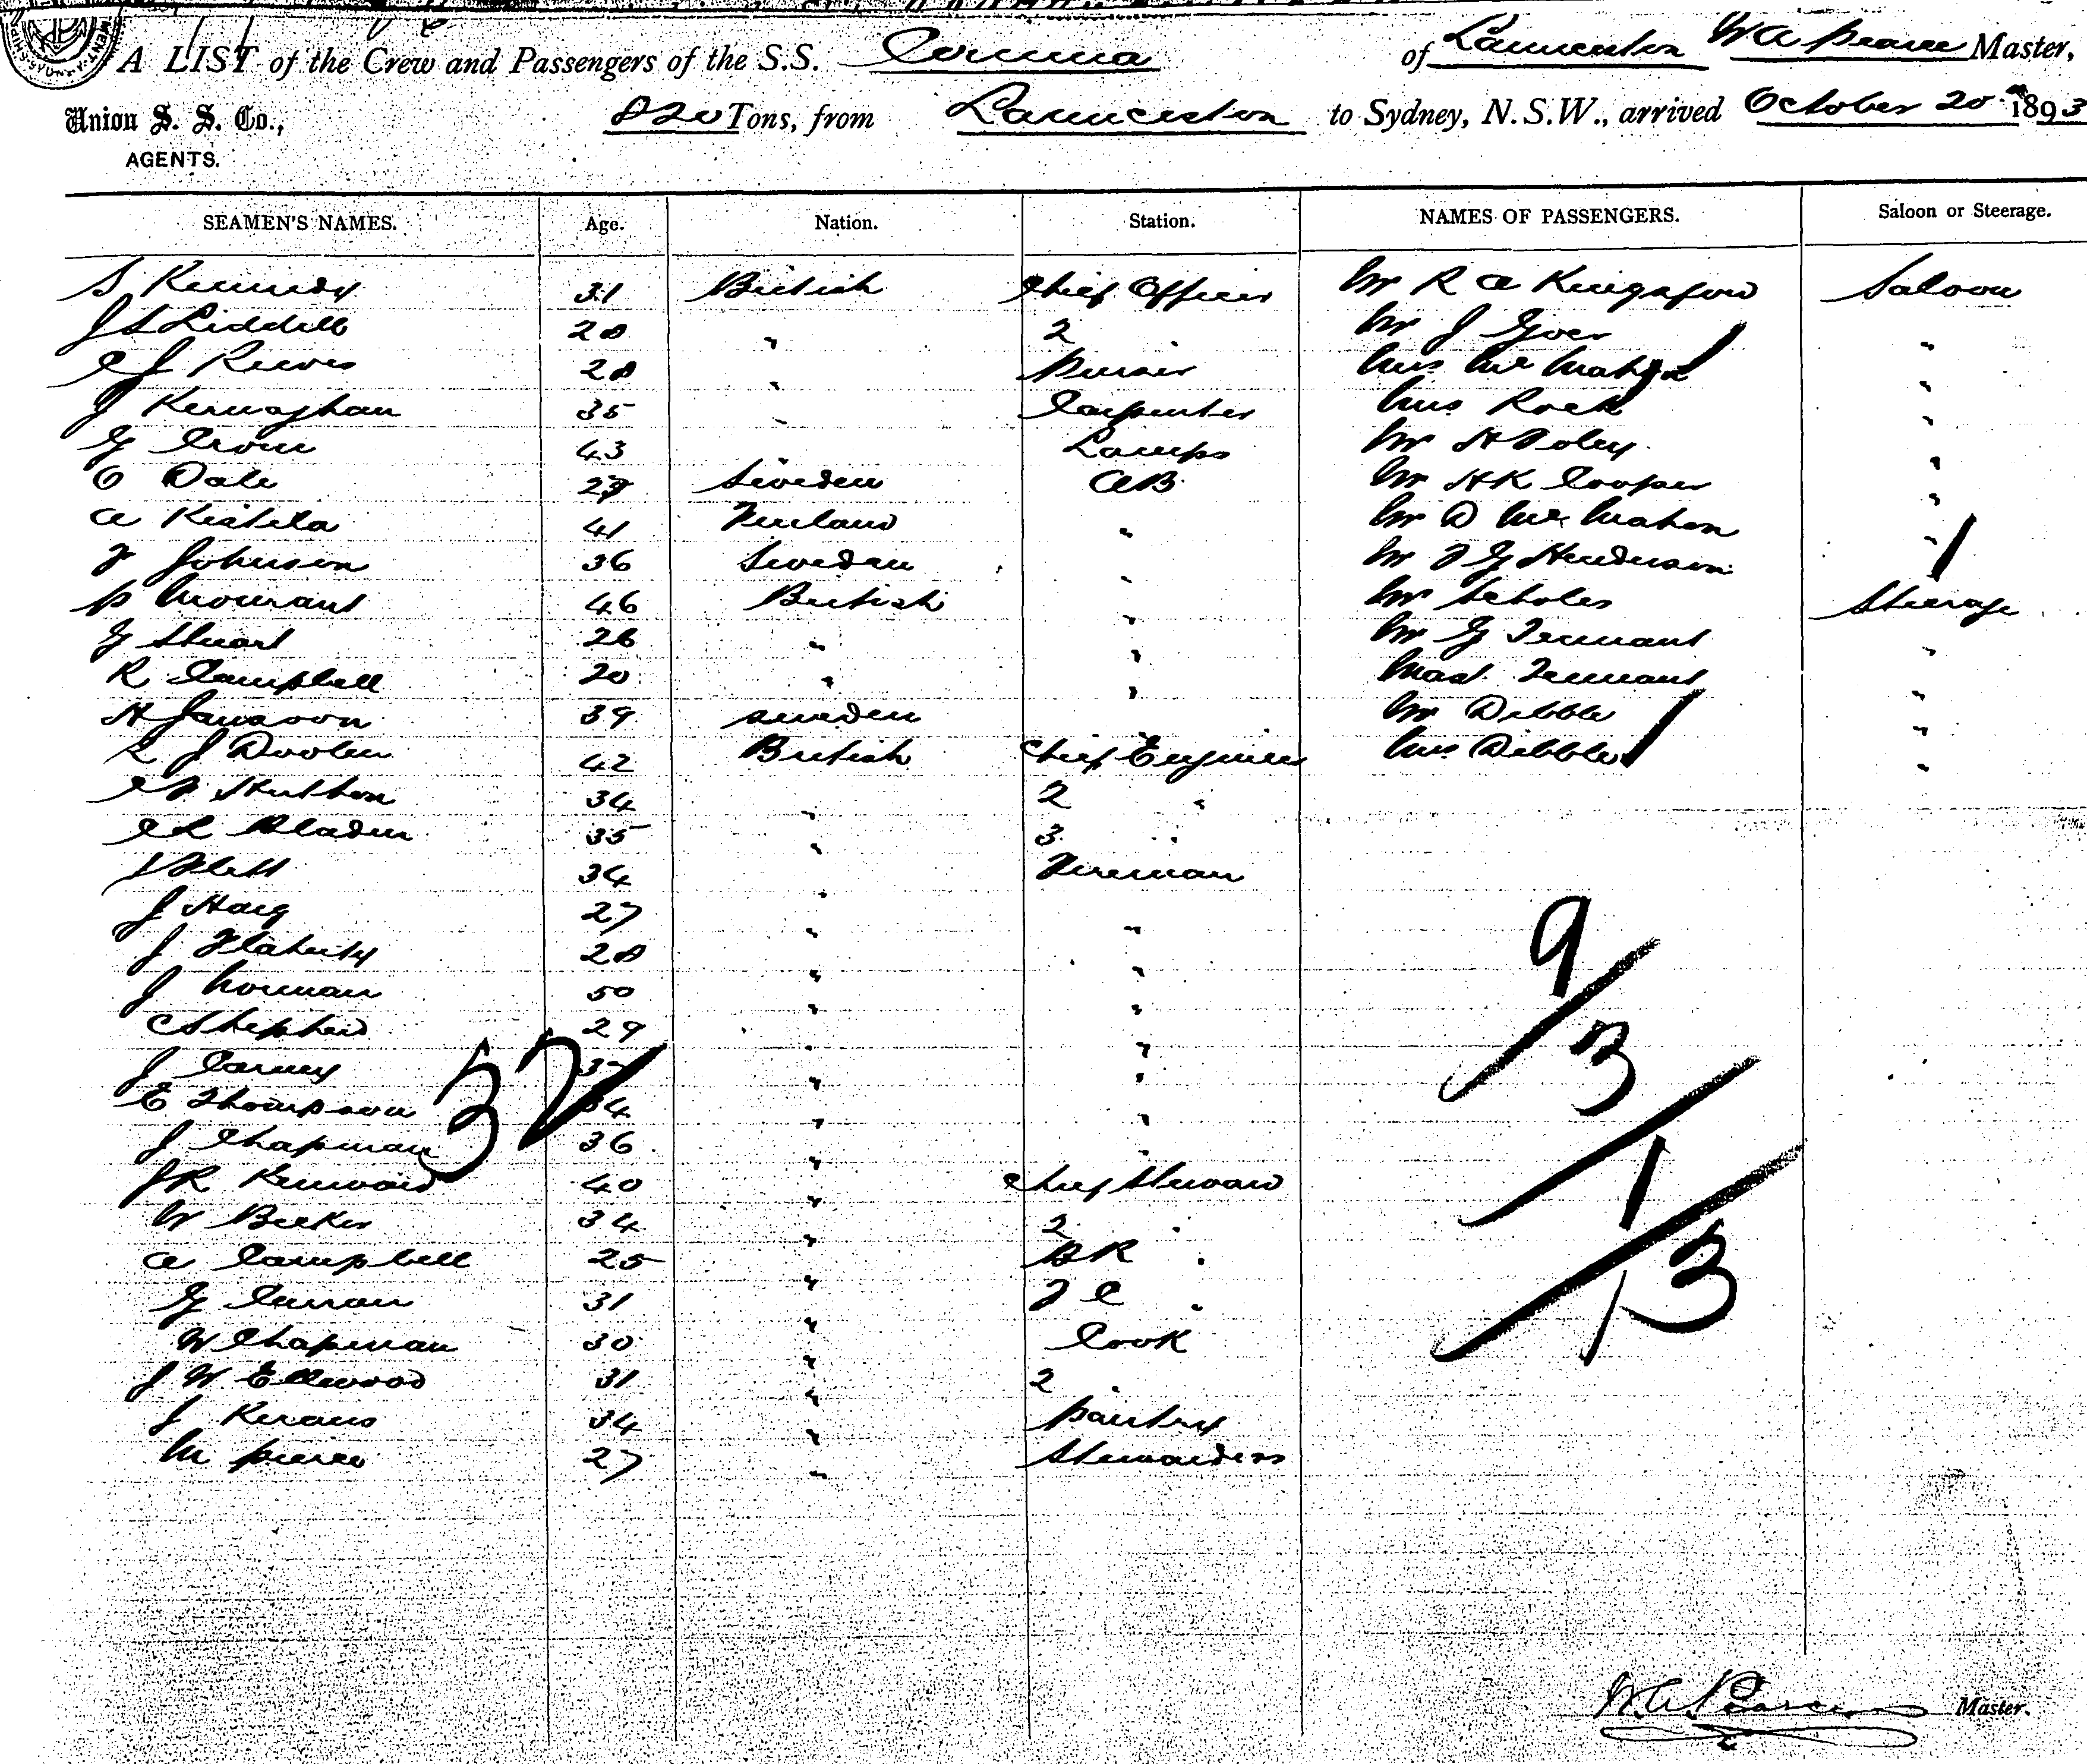 A LIST of the Crew and Passengers of the S.S. Corinna of Launceston W A Pearce Master,
Union S. S. Co., 820 Tons, from Launceston to Sydney, N.S.W., arrived October 20th 1893
AGENTS.
SEAMEN'S NAMES. Age. Nation. Station. NAMES OF PASSENGERS. Saloon or Steerage.
S Kennedy 31 British Chief Officer Mr R A Kingsford Saloon
J S Liddell 28 " 2 " Mr J Goer "
C J Reeves 28 " Purser Mrs McMahon "
J Kernaghan 35 " Carpenter Mrs Rock "
G Crown 43 Lamps Mr H Foley "
O Dale 29 Sweden AB Mr H K Cooper "
A Kistila 41 Finland " Mr D McMahon "
F Johnson 36 Sweden " Mr F G Henderson "
P Mourant 46 British " Mr Scholes Steerage
G Stuart 26 " " Mr G Tennant "
R Campbell 20 " " Mast. Tennant "
H Jansson 39 Sweden Mr Dibble "
R J Doolen 42 British Chief Engineer Mrs Dibble "
C F Hutton 34 " 2 "
C R Bladen 35 " 3 "
J Flett 34 " Fireman
J Haig 27 " "
J Flaherty 28 " "
J Norman 50 " "
C Shepherd 29 " "
J Carney 37 " "
E Thompson 34 " "
J Chapman 36 " "
J R Kenward 40 " Chief Steward
W Beeker 34 " 2 "
A Campbell 25 " BR "
G Curran 31 " F C "
W Chapman 30 " Cook
J W Ellwood 31 " 2 "
J Kerans 34 " Pantry
M Pierce 27 " Stewardess
32
9/
3/
1/
13
W. A. Pearce Master.